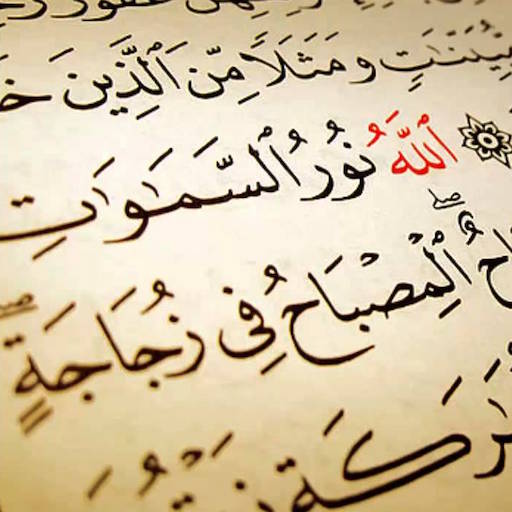 غفور
وَمَثَلًا مِّنَ ٱلَّذِينَ خَ
ٱللَّهُ نُورُ ٱلسَّمَـٰوَٰتِ
احٌ ۖ ٱلْمِصْبَاحُ فِى زُجَاجَةٍ ۖ
ـٰرَكَةٍ